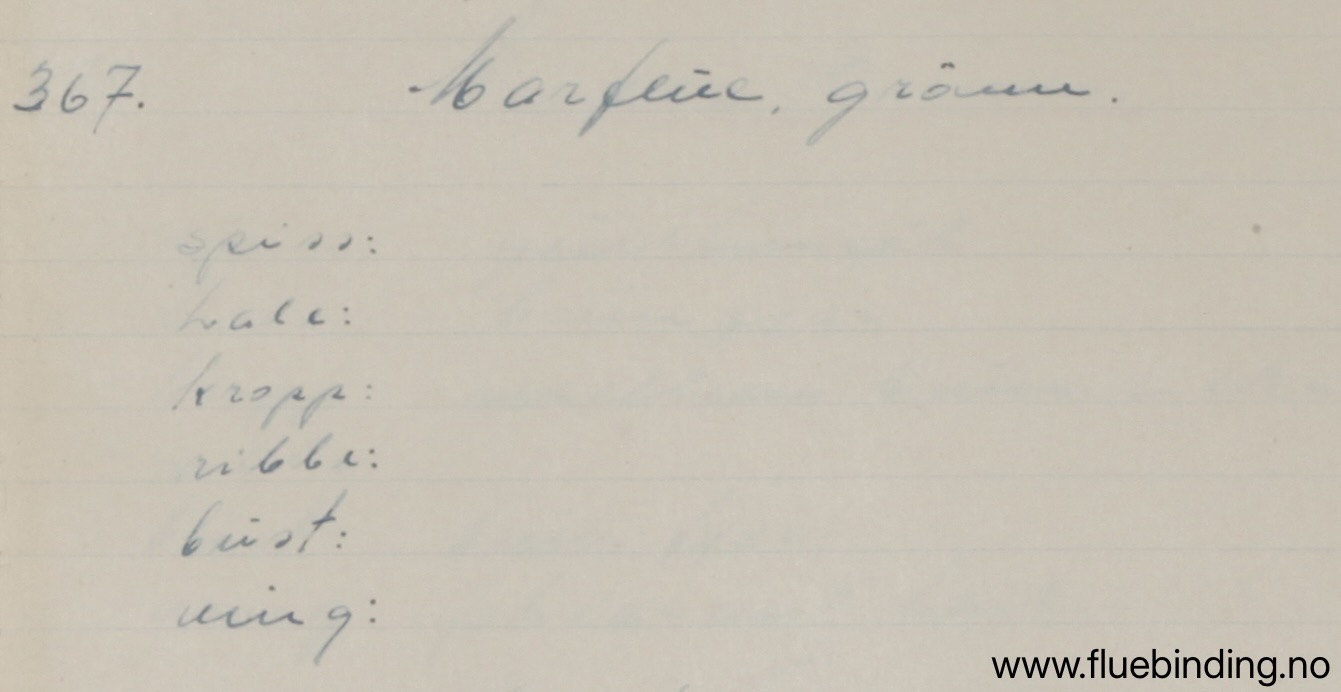 367. Marflue, grönn.
spiss:
hale:
kropp:
ribbe:
bust:
ving:
www.fluebinding.no